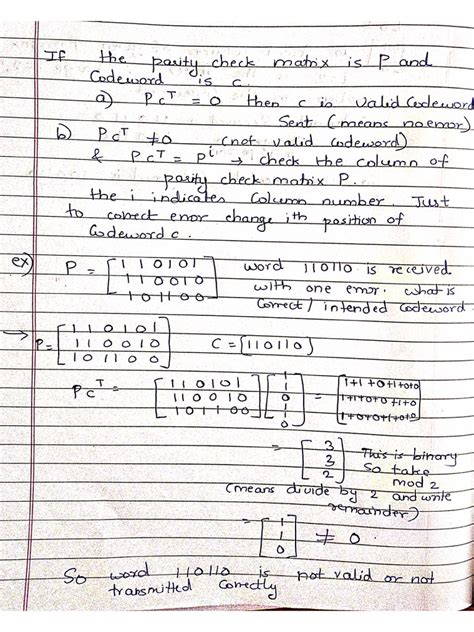 If the parity check matrix is P and
Codeword is c.
a) PcT = 0 then c is valid Codeword
Sent (means no error)
b) PcT ≠ 0 (not valid codeword)
& PcT = Pi → check the column of
parity check matrix P.
the i indicates column number. Just
to correct error change ith position of
Codeword c.
ex) P = [1 1 0 1 0 1 word 110110 is received
1 1 0 0 1 0 with one error. what is
1 0 1 1 0 0] correct / intended codeword
→ P = [1 1 0 1 0 1
1 1 0 0 1 0 C = [110110]
1 0 1 1 0 0]
PcT = [1 1 0 1 0 1 [1 [1+1+0+1+0+0
1 1 0 0 1 0 1 = 1+1+0+0+1+0
1 0 1 1 0 0] 0 1+0+0+1+0+0]
1
1
0]
= [3 This is binary
3 So take
2] mod 2
(means divide by 2 and write
remainder)
= [1
1 ≠ 0
0]
So word 110110 is not valid or not
transmitted correctly